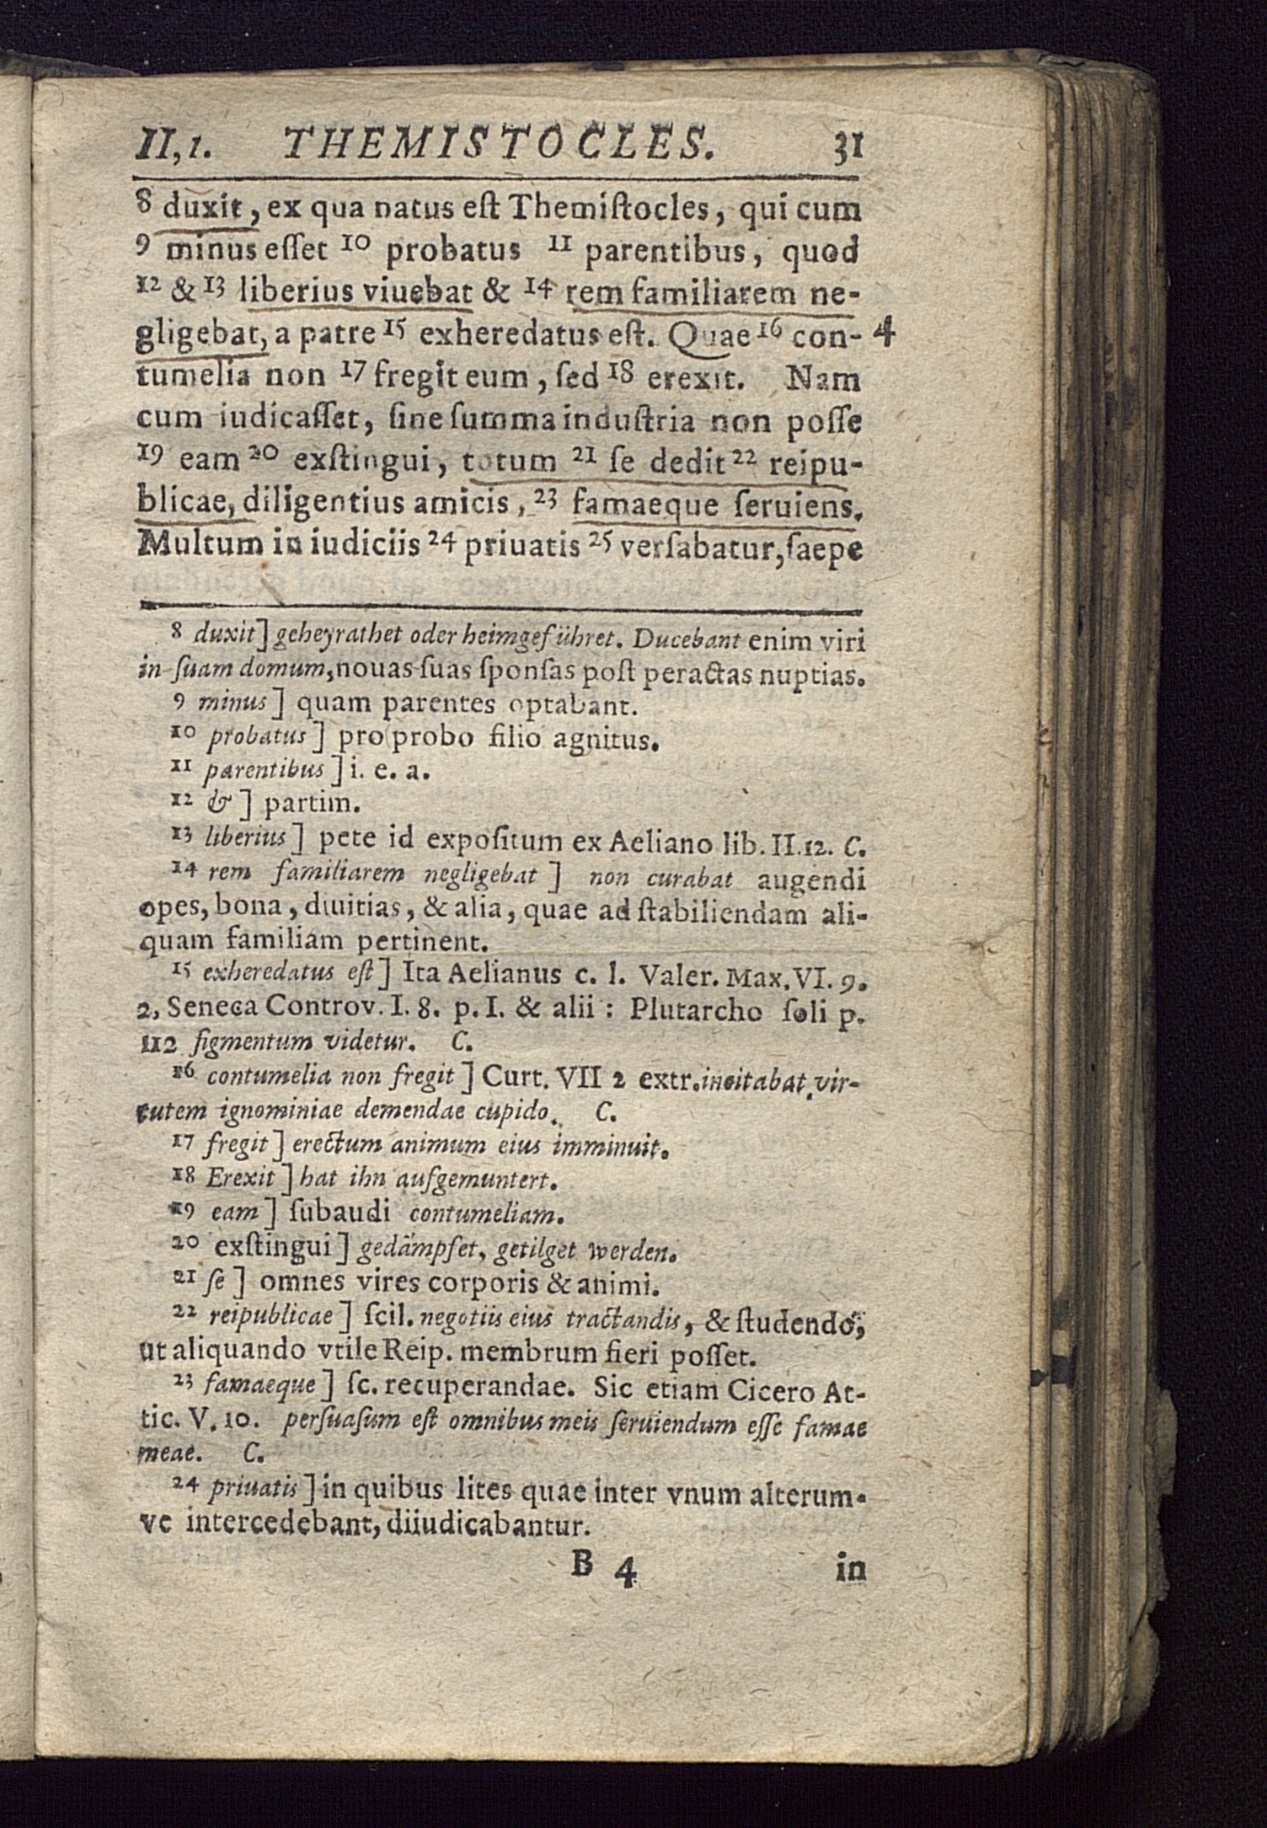 II, 1. THEMISTOCLES. 31
8 duxit, ex qua natus eſt Themiſtocles, qui cum
9 minus eſſet 10 probatus 11 parentibus, quod
12 & 13 liberius viuebat & 14 rem familiarem ne-
gligebat, a patre 15 exheredatus eſt. Quae 16 con- 4
tumelia non 17 fregit eum, ſed 18 erexit. Nam
cum iudicaſſet, ſine ſumma induſtria non poſſe
19 eam 20 exſtingui, totum 21 ſe dedit 22 reipu-
blicae, diligentius amicis, 23 famaeque ſeruiens.
Multum in iudiciis 24 priuatis 25 verſabatur, ſaepe
8 duxit] geheyrathet oder heimgeführet. Ducebant enim viri
in ſuam domum, nouas ſuas ſponſas poſt peractas nuptias.
9 minus] quam parentes optabant.
10 probatus] pro probo filio agnitus.
11 parentibus] i. e. a.
12 &] partim.
13 liberius] pete id expoſitum ex Aeliano lib. II. 12. C.
14 rem familiarem negligebat] non curabat augendi
opes, bona, diuitias, & alia, quae ad ſtabiliendam ali-
quam familiam pertinent.
15 exheredatus eſt] Ita Aelianus c. l. Valer. Max. VI. 9.
2, Seneca Controv. I. 8. p. I. & alii: Plutarcho ſoli p.
112 figmentum videtur. C.
16 contumelia non fregit] Curt. VII 2 extr. incitabat vir-
tutem ignominiae demendae cupido. C.
17 fregit] erectum animum eius imminuit.
18 Erexit] hat ihn aufgemuntert.
19 eam] ſubaudi contumeliam.
20 exſtingui] gedämpfet, getilget werden.
21 ſe] omnes vires corporis & animi.
22 reipublicae] ſcil. negotiis eius tractandis, & ſtudendo,
ut aliquando vtile Reip. membrum fieri poſſet.
23 famaeque] ſc. recuperandae. Sic etiam Cicero At-
tic. V. 10. perſuaſum eſt omnibus meis ſeruiendum eſſe famae
meae. C.
24 priuatis] in quibus lites quae inter vnum alterum-
ve intercedebant, diiudicabantur.
B 4 in